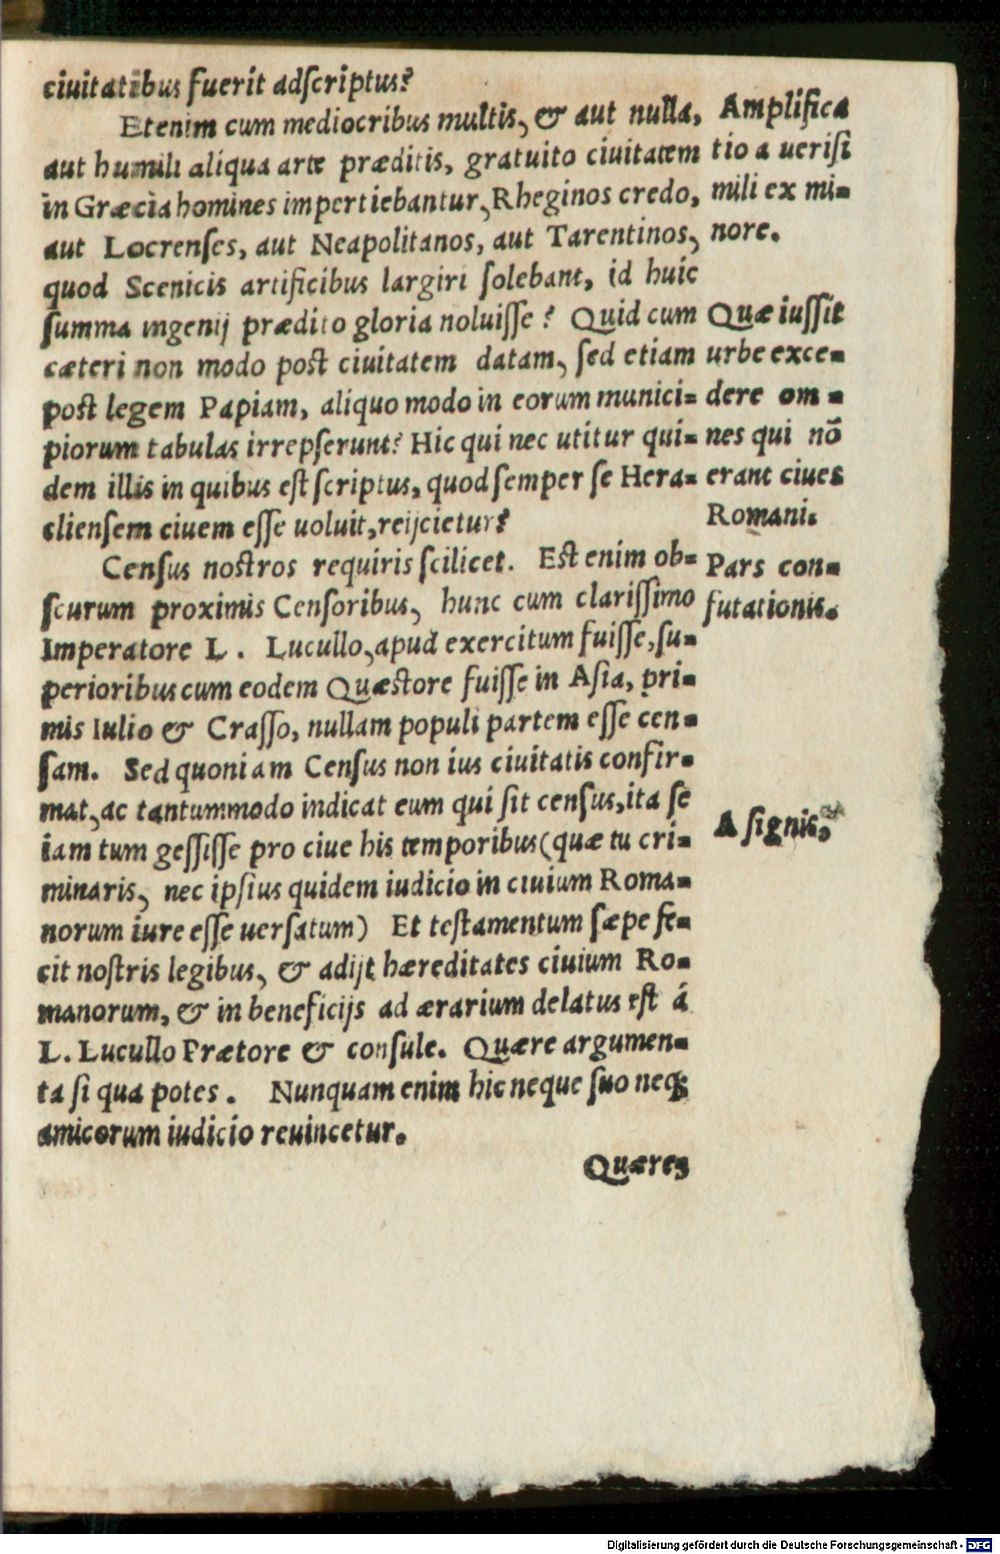 ciuitatibus fuerit adſcriptus?
Etenim cum mediocribus multis, & aut nulla,
aut humili aliqua arte præditis, gratuito ciuitatem
in Græcia homines impertiebantur, Rheginos credo,
aut Locrenſes, aut Neapolitanos, aut Tarentinos,
quod Scenicis artificibus largiri ſolebant, id huic
ſumma ingenij prædito gloria noluiſſe? Quid cum
cæteri non modo poſt ciuitatem datam, ſed etiam
poſt legem Papiam, aliquo modo in eorum munici=
piorum tabulas irrepſerunt? Hic qui nec utitur qui=
dem illis in quibus eſt ſcriptus, quod ſemper ſe Hera=
clienſem ciuem eſſe uoluit, reijcietur?
Cenſus noſtros requiris ſcilicet. Eſt enim ob=
ſcurum proximis Cenſoribus, hunc cum clariſſimo
Imperatore L. Lucullo, apud exercitum fuiſſe, ſu=
perioribus cum eodem Quæſtore fuiſſe in Aſia, pri=
mis Iulio & Craſſo, nullam populi partem eſſe cen=
ſam. Sed quoniam Cenſus non ius ciuitatis confir=
mat, ac tantummodo indicat eum qui ſit cenſus, ita ſe
iam tum geſſiſſe pro ciue his temporibus (quæ tu cri=
minaris, nec ipſius quidem iudicio in ciuium Roma=
norum iure eſſe uerſatum) Et teſtamentum ſæpe fe=
cit noſtris legibus, & adijt hæreditates ciuium Ro=
manorum, & in beneficijs ad ærarium delatus eſt á
L. Lucullo Prætore & conſule. Quære argumen=
ta ſi qua potes. Nunquam enim hic neque ſuo neq;
amicorum iudicio reuincetur.
Quæres
Amplifica
tio a ueriſi
mili ex mi=
nore.
Quæ iuſſit
urbe exce=
dere om=
nes qui nō
erant ciues
Romani.
Pars con=
futationis.
A ſignis,
Digitalisierung gefördert durch die Deutsche Forschungsgemeinschaft - DFG